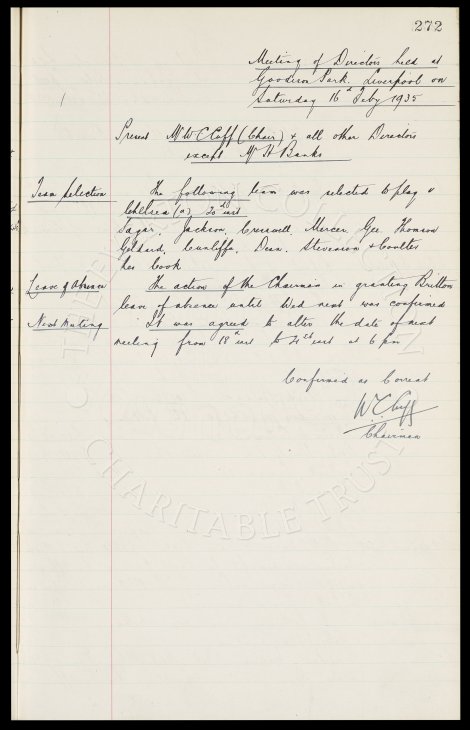 272
Meeting of Directors held at
Goodison Park. Liverpool on
Saturday 16th Feby 1935
Present Mr W C Cuff (Chair) & all other Directors
except Mr H Banks
Team Selection The following team was selected to play v
Chelsea (a) 20th inst
Sagar, Jackson, Cresswell, Mercer, Gee, Thomson
Geldard, Cunliffe, Dean, Stevenson & Coulter
Res Cook
Leave of Absence The action of the Chairman in granting Britton
leave of absence until Wed next was confirmed
Next Meeting It was agreed to alter the date of next
meeting from 18th inst to inst at 6 pm
Confirmed as Correct
W. C. Cuff
Chairman
THE EVERTON COLLECTION
CHARITABLE TRUST